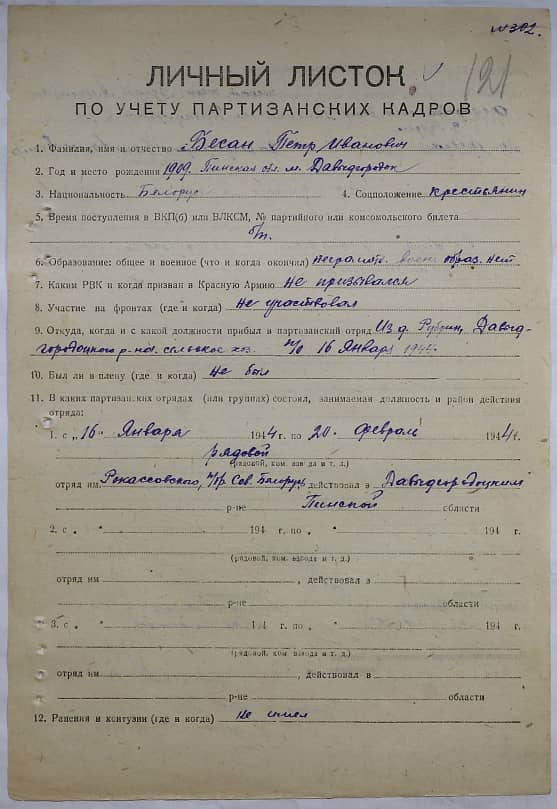 № 302.
121
ЛИЧНЫЙ ЛИСТОК
ПО УЧЕТУ ПАРТИЗАНСКИХ КАДРОВ
1. Фамилия, имя и отчество Бесан Петр Иванович
2. Год и место рождения 1909. Пинская обл. м. Давыдгородок
3. Национальность Белорус 4. Соцположение крестьянин
5. Время поступления в ВКП(б) или ВЛКСМ, № партийного или комсомольского билета
б/п.
6. Образование: общее и военное (что и когда окончил) неграмотн. воен. образ. нет
7. Каким РВК и когда призван в Красную Армию не призывался
8. Участие на фронтах (где и когда) не участвовал
9. Откуда, когда и с какой должности прибыл в партизанский отряд Из д. Рубрин, Давыд-
городоцкого р-на. сельское хоз. 16 Января 1944.
10. Был ли в плену (где и когда) не был
11. В каких партизанских отрядах (или группах) состоял, занимаемая должность и район действия
отряда:
1. с „16" Января 1944 г. по 20 февраль 1944 г.
рядовой
(рядовой, ком. взвода и т. д.)
отряд им. Рокассовского, Сов. Белорус. действовал в Давыдгородоцким
р-не Пинской области
2. с " 194 г. по " 194 г.
(рядовой, ком. взвода и т. д.)
отряд им , действовал в
р-не области
3. с " 194 г. по " 194 г.
(рядовой, ком. взвода и т. д.)
отряд им , действовал в
р-не области
12. Ранения и контузии (где и когда) не имел